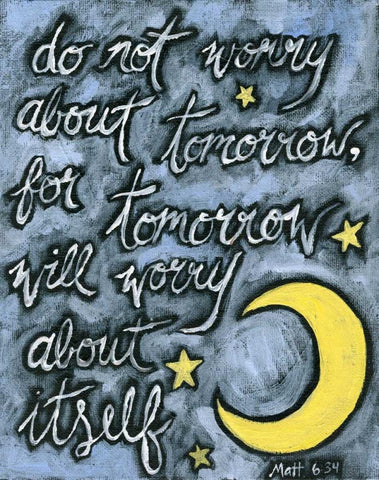 do not worry
about tomorrow,
for tomorrow
will worry
about
itself
Matt 6:34